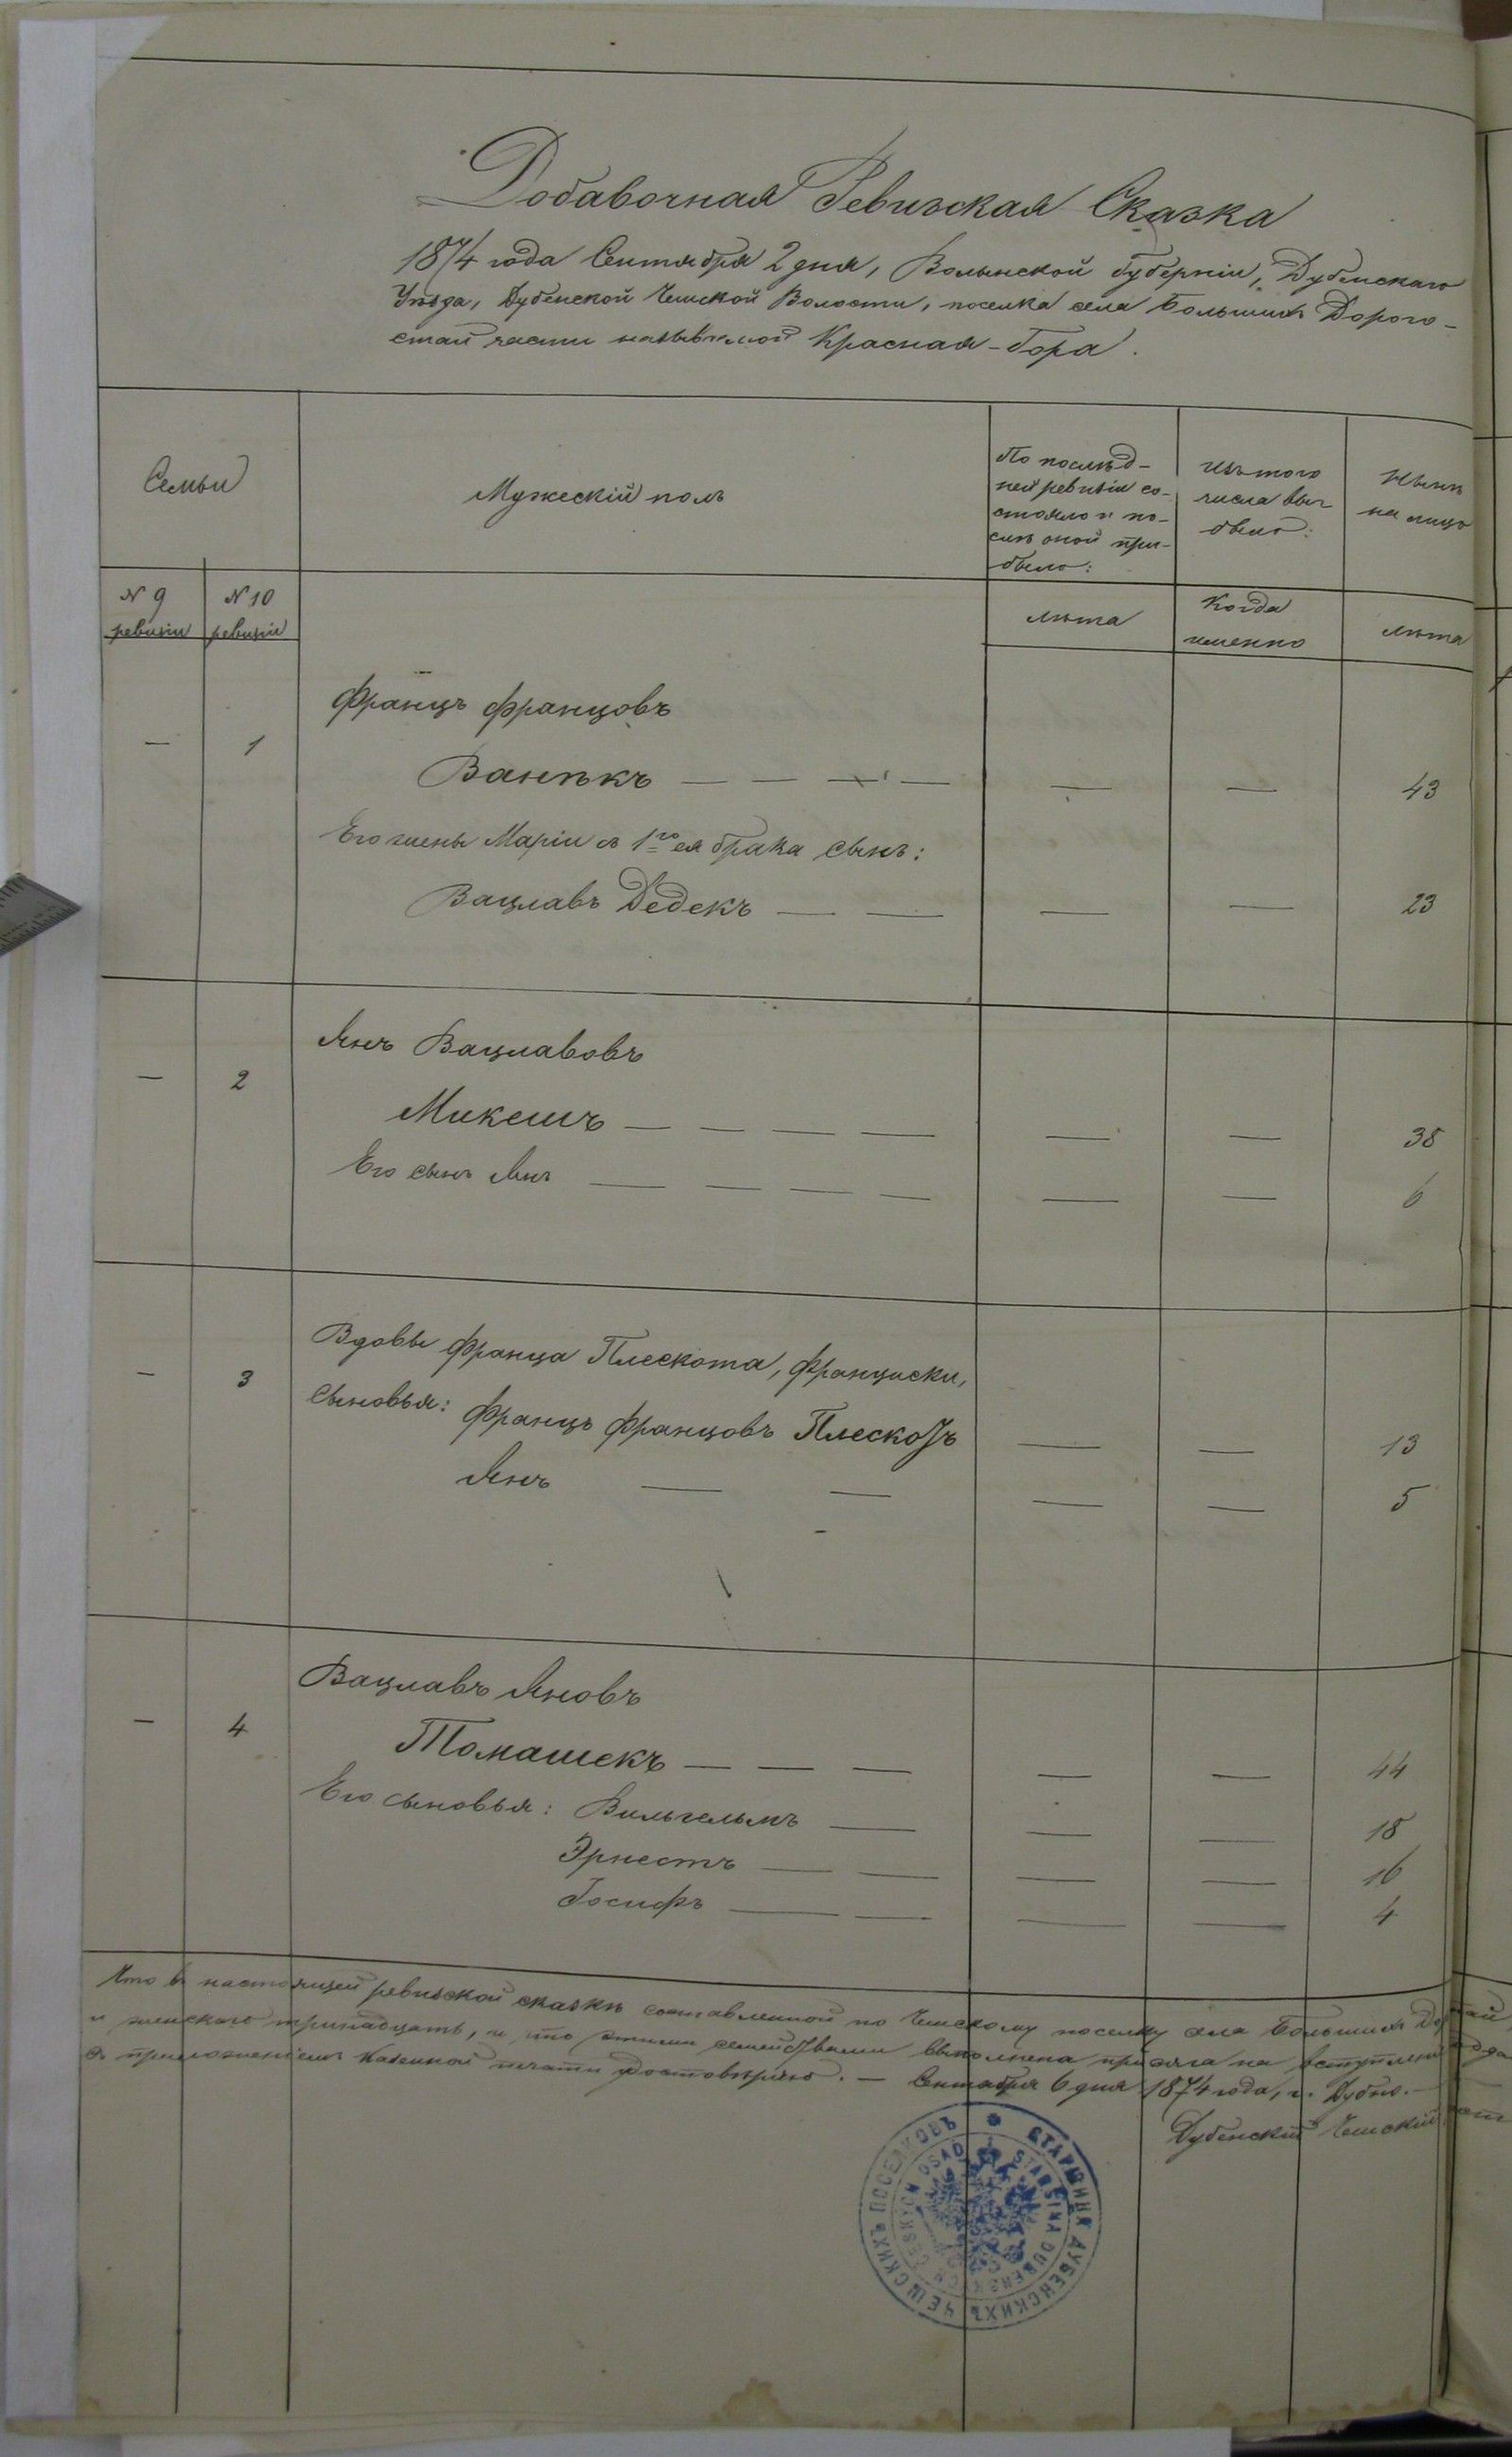 Добавочная Ревизская Сказка
1874 года Сентября 2 дня, Волынской Губерніи, Дубенскаго
Уѣзда, Дубенской Чешской Волости, поселка села Большихъ Дорого-
стай части называемой Красная-Гора.
Семьи
Мужескій полъ
По послѣд-
ней ревизіи со-
стояло и по-
слѣ оной при-
было:
Изъ того
числа вы-
было:
Нынѣ
на лицо
№ 9
ревизіи
№ 10
ревизіи
лѣта
Когда
именно
лѣта
Францъ Францовъ
— 1
Ванѣкъ — — — — — — 43
Его жены Маріи съ 1го ея брака сынъ:
Вацлавъ Дедекъ — — — — 23
Янъ Вацлавовъ
— 2
Микешъ — — — — — — 38
Его сынъ Янъ — — — — — — 6
Вдовы Франца Плескота, Франциски,
— 3
Сыновья: Францъ Францовъ Плескотъ — — 13
Янъ — — — — 5
Вацлавъ Яновъ
— 4
Томашекъ — — — — — 44
Его сыновья: Вильгельмъ — — — 18
Эрнестъ — — — — 16
Іосифъ — — — — 4
Что въ настоящей ревизской сказкѣ составленной по Чешскому поселку села Большихъ
и женскаго тринадцать, и что этими семействами выполнена присяга на
съ приложеніемъ казенной печати удостовѣряю. — Сентября 6 дня 1874 года, г. Дубно. —
Дубенскій Чешскій
СТАРШИНА ДУБЕНСКИХЪ ЧЕШСКИХЪ ПОСЕЛКОВЪ
STARSINA DUBENSKÝCH ČESKÝCH OSAD